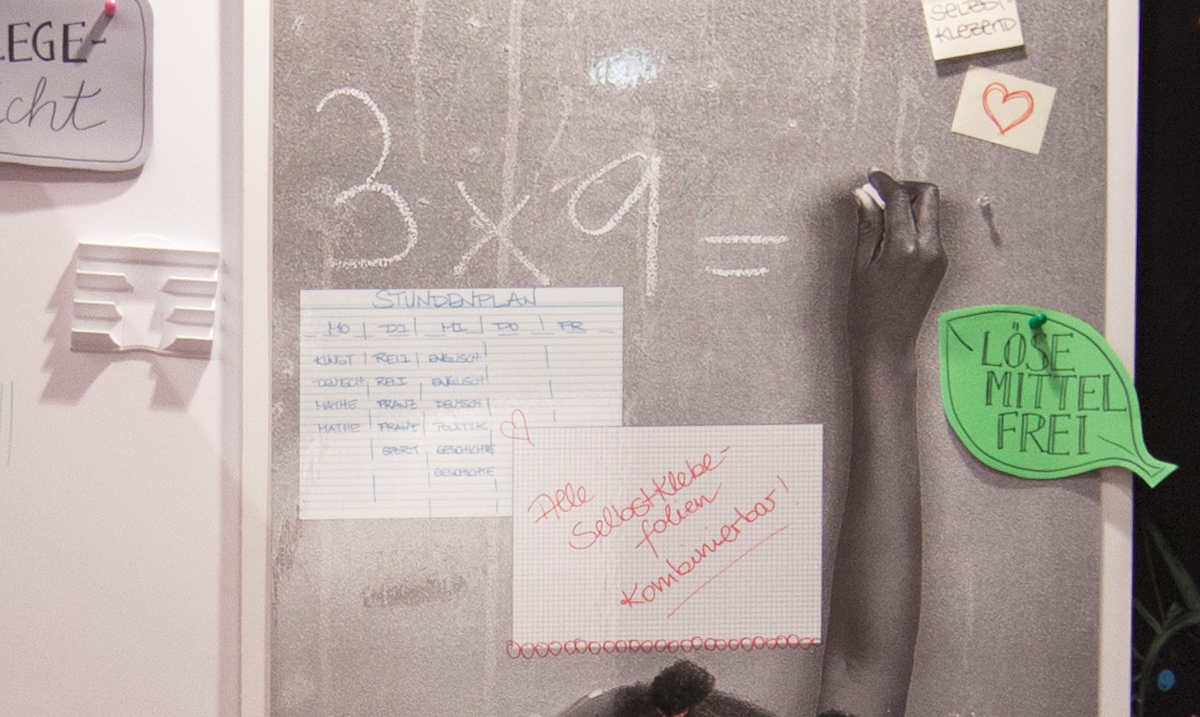 EGE-
cht
SELBST-
KLEBEND
3 x 9 =
STUNDENPLAN
MO DI MI DO FR
KUNST RELI ENGLISCH
DEUTSCH RELI ENGLISCH
MATHE FRANZ DEUTSCH
MATHE FRANZ POLITIK
SPORT GESCHICHTE
GESCHICHTE
Alle
Selbstklebe-
folien
Kombinierbar!
LÖSE
MITTEL
FREI